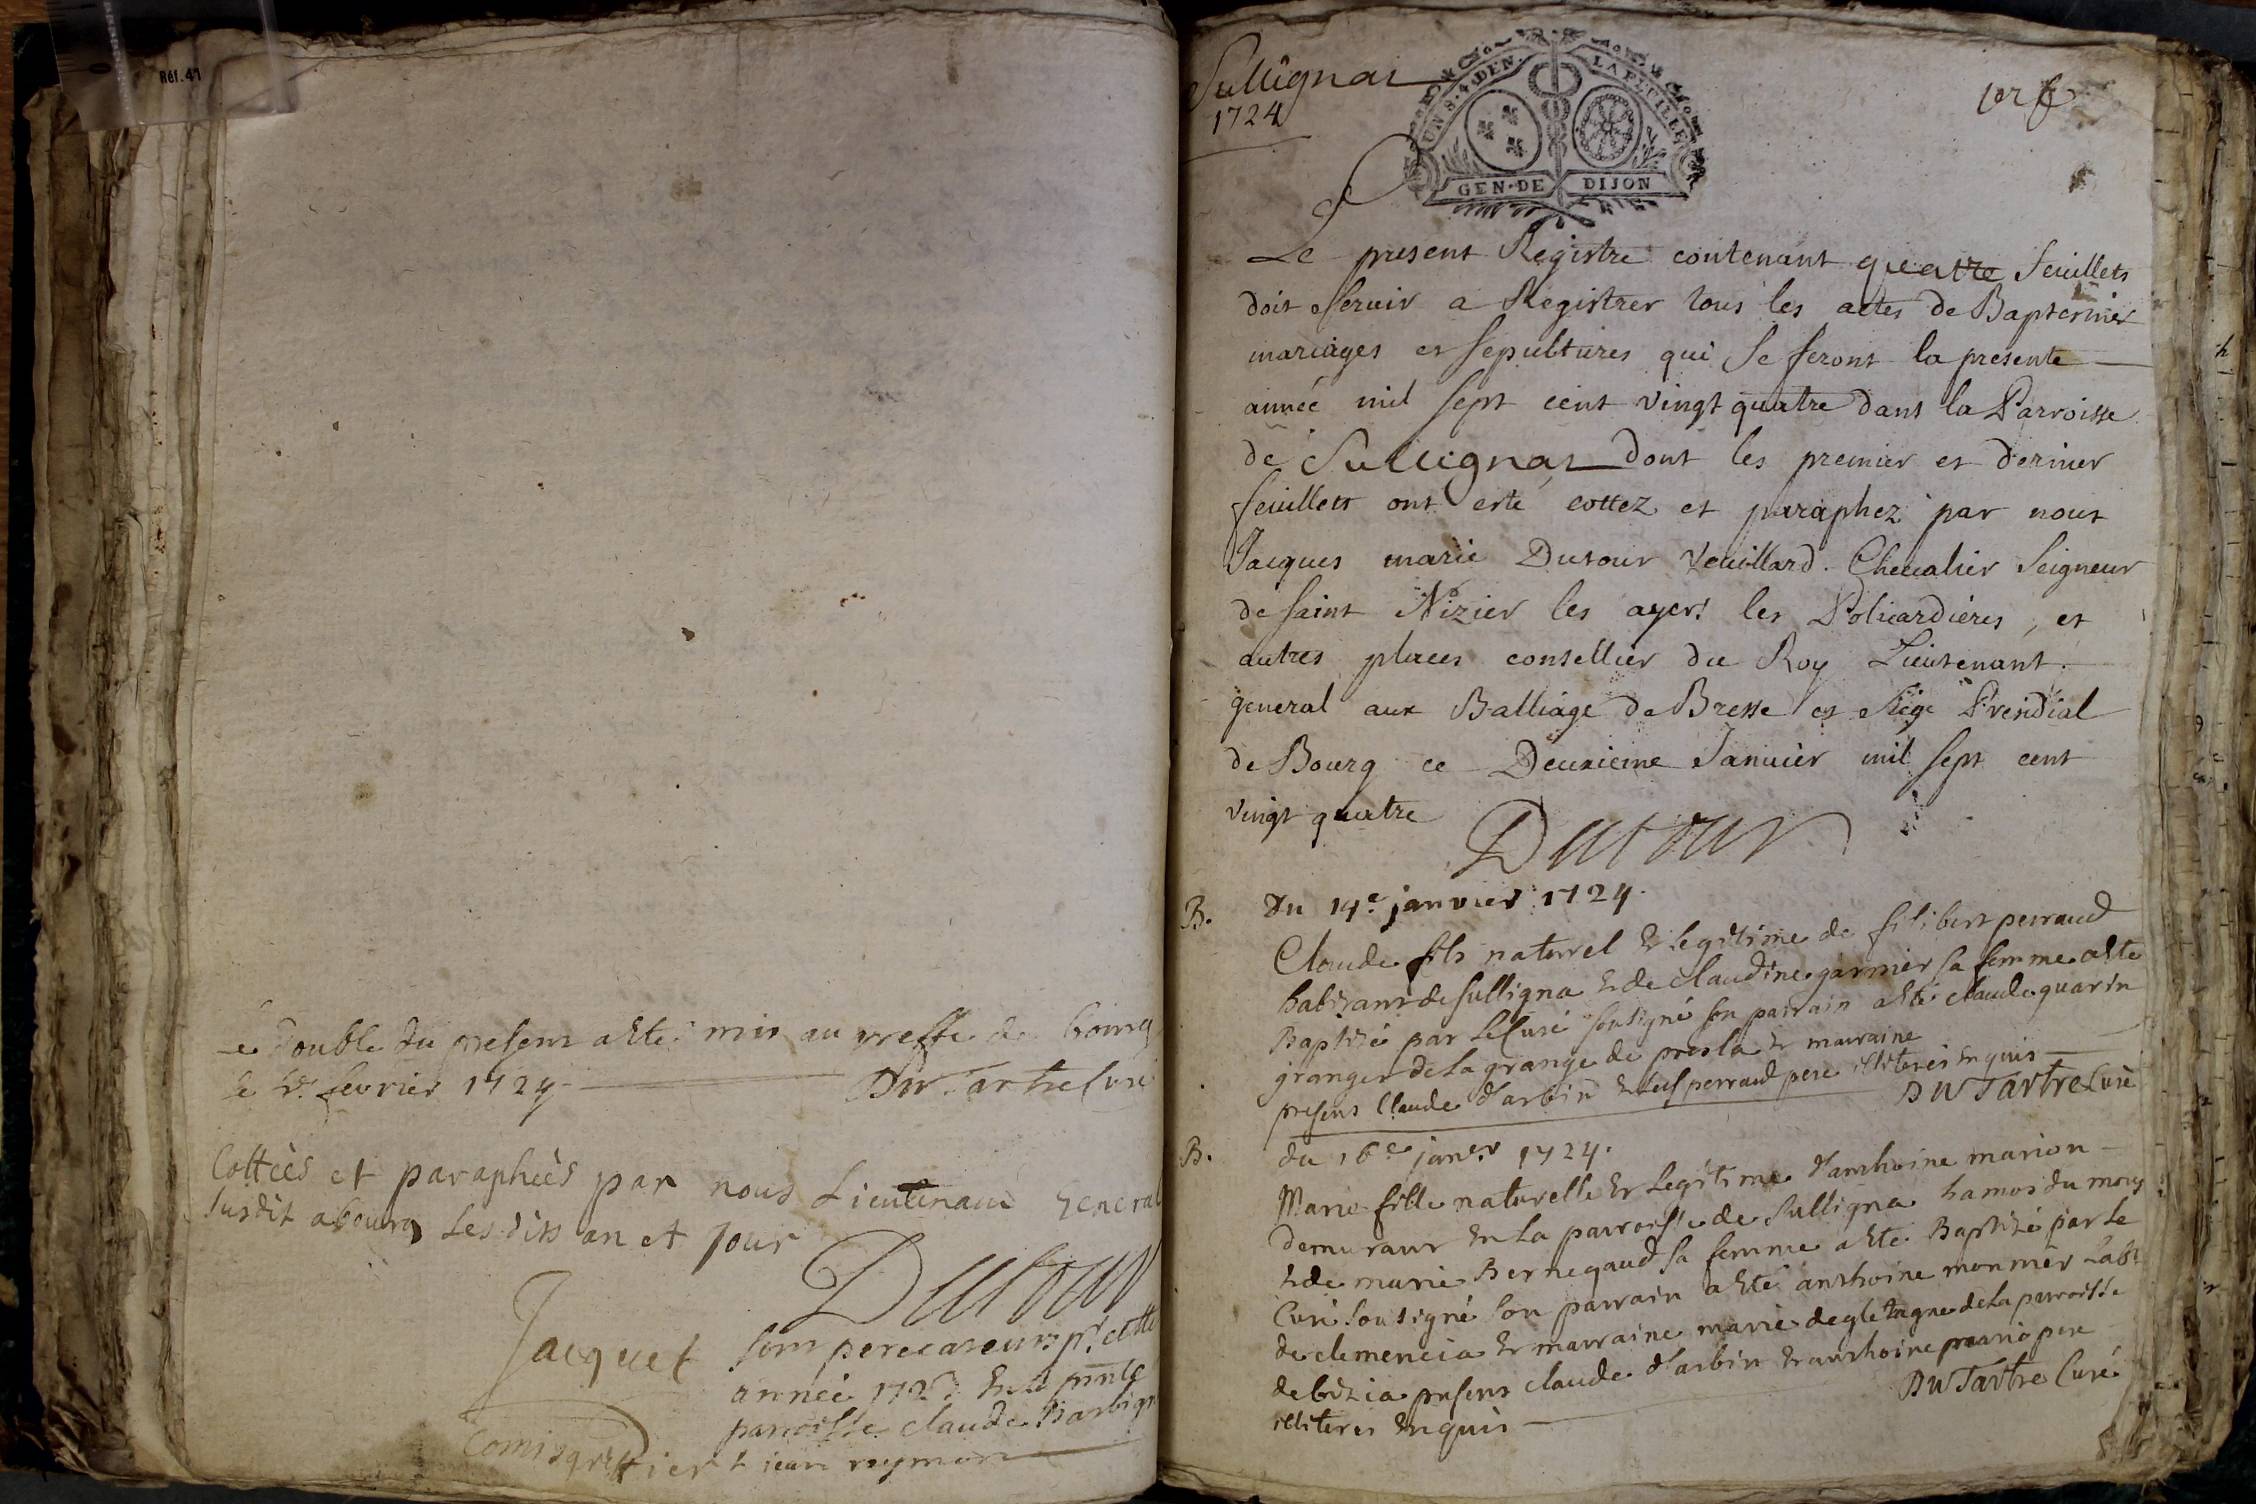 Réf. 41
Le double du present a este mis au greffe de bourg
le febvrier 1724
Du Tartre Curé
Cottées et paraphées par nous Lieutenant General
susdit a bourg Lesdits an et jour
Dutour
Jacquet
Comis greffier
sont
année 172
parroisse claude Darbign
Sulligna
1724
1er f
UN S. 4 DEN. LA FEUILLE
GEN. DE DIJON
Le present Registre contenant quatre feuillets
doit servir a Registrer tous les actes de Baptesmes
mariages et sepultures qui se feront la presente
année mil sept cent vingt quatre dans la Parroisse
de Sulligna dont les premier et dernier
feuillets ont esté cottez et paraphez par nous
Jacques marie Dutour Veuillard. Chevalier Seigneur
de saint Nizier les ayers les Poliardieres, et
autres places conseller du Roy Lieutenant
general aux Balliage de Bresse et siege Presidial
de Bourg ce Deuxieme Janvier mil sept cent
vingt quatre
Dutour
B. Du 14e janvier 1724.
Claude fils naturel & legitime de filibert perraud
habitant de sulligna & de claudine garnier sa femme a este
Baptizé par le Curé sousigné son parrain a esté claude guarin
granger de la grange de presla & marraine
presens Claude d'arbin & perraud pere illiteres enquis
Du Tartre Curé
B. du 16e janer 1724.
Marie fille naturelle & legitime d'anthoine marion
demurant en la parroisse de sulligna hamos du mony
& de marie Bernegaud sa femme a este Baptizé par le
Curé sousigné son parrain a esté anthoine monnier
de clemencia & marraine marie de la parroisse
de presens claude d'arbin & anthoine pere
illiteres enquis
Du Tartre Curé